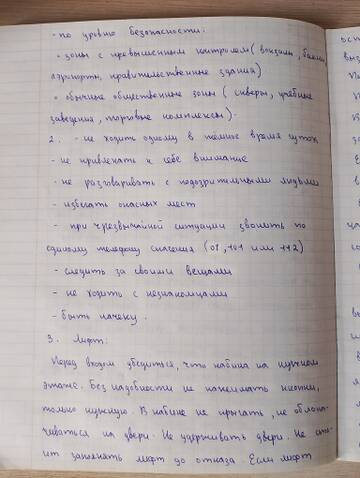 - по уровню безопасности:
• зоны с превышенным контролем (вокзалы, банки,
аэропорты, правительственные здания)
• обычные общественные зоны (скверы, учебные
заведения, торговые комплексы).
2. - не ходить одному в тёмное время суток
- не привлекать к себе внимание
- не разговаривать с подозрительными людьми
- избегать опасных мест
- при чрезвычайной ситуации звонить по
единому телефону спасения (01, 101 или 112)
- следить за своими вещами
- не ходить с незнакомцами
- быть начеку.
3. Лифт:
Перед входом убедиться, что кабина на нужном
этаже. Без надобности не нажимать кнопки,
только нужную. В кабине не прыгать, не облока-
чиваться на двери. Не удерживать двери. Не сто-
ит заполнять лифт до отказа. Если лифт